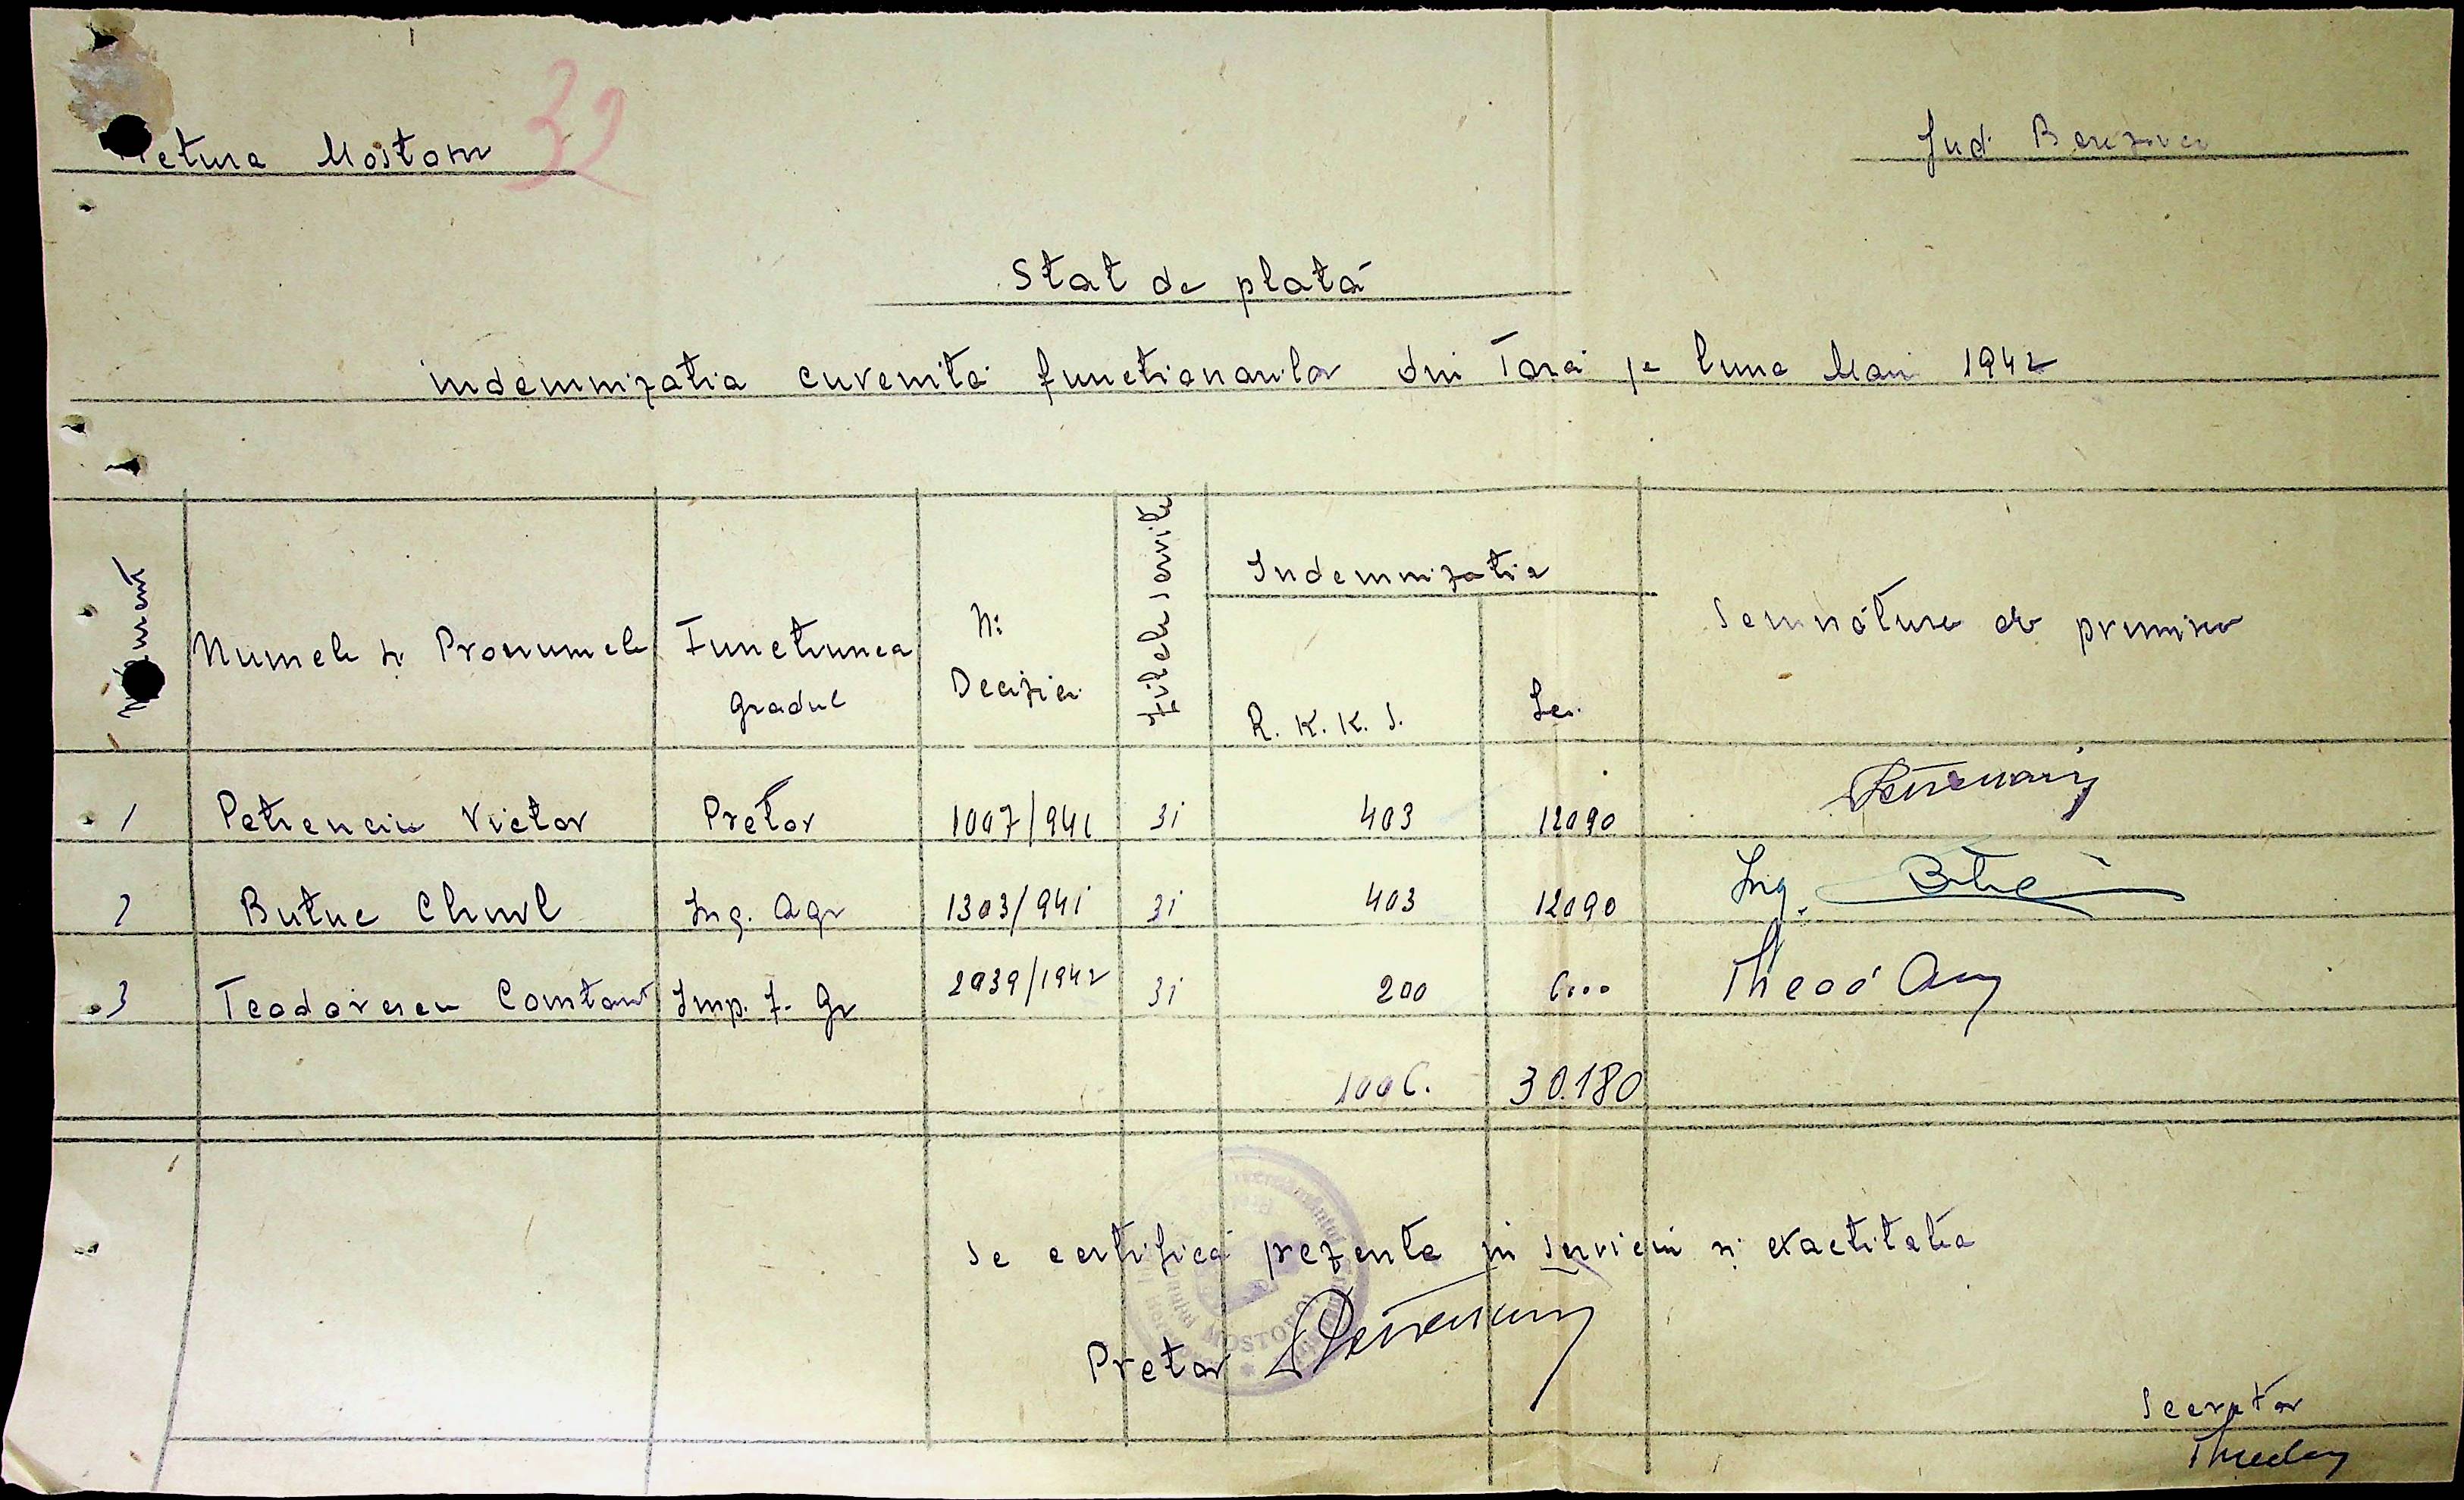 32
Pretura Mostovoi
Jud. Berezovca
Stat de plată
indemnizatia cuvenită functionarilor din Tară pe luna Mai 1942
Numele și Pronumele
Functiunea
gradul
Nr
Deciziei
Zilele servite
Indemnizatia
R. K. K. S.
Lei
Semnătura de primire
1 Petrenciu Victor Pretor 1007/941 31 403 12090
2 Butuc Ing. Agr 1303/941 31 403 12090 Ing.
3 Teodorescu Constant Imp. f. Gr 2039/1942 31 200 6000
1006. 30.180
Se certifică prezenta in serviciu și exactitatea
Pretor
MOSTOVOI
Secretar